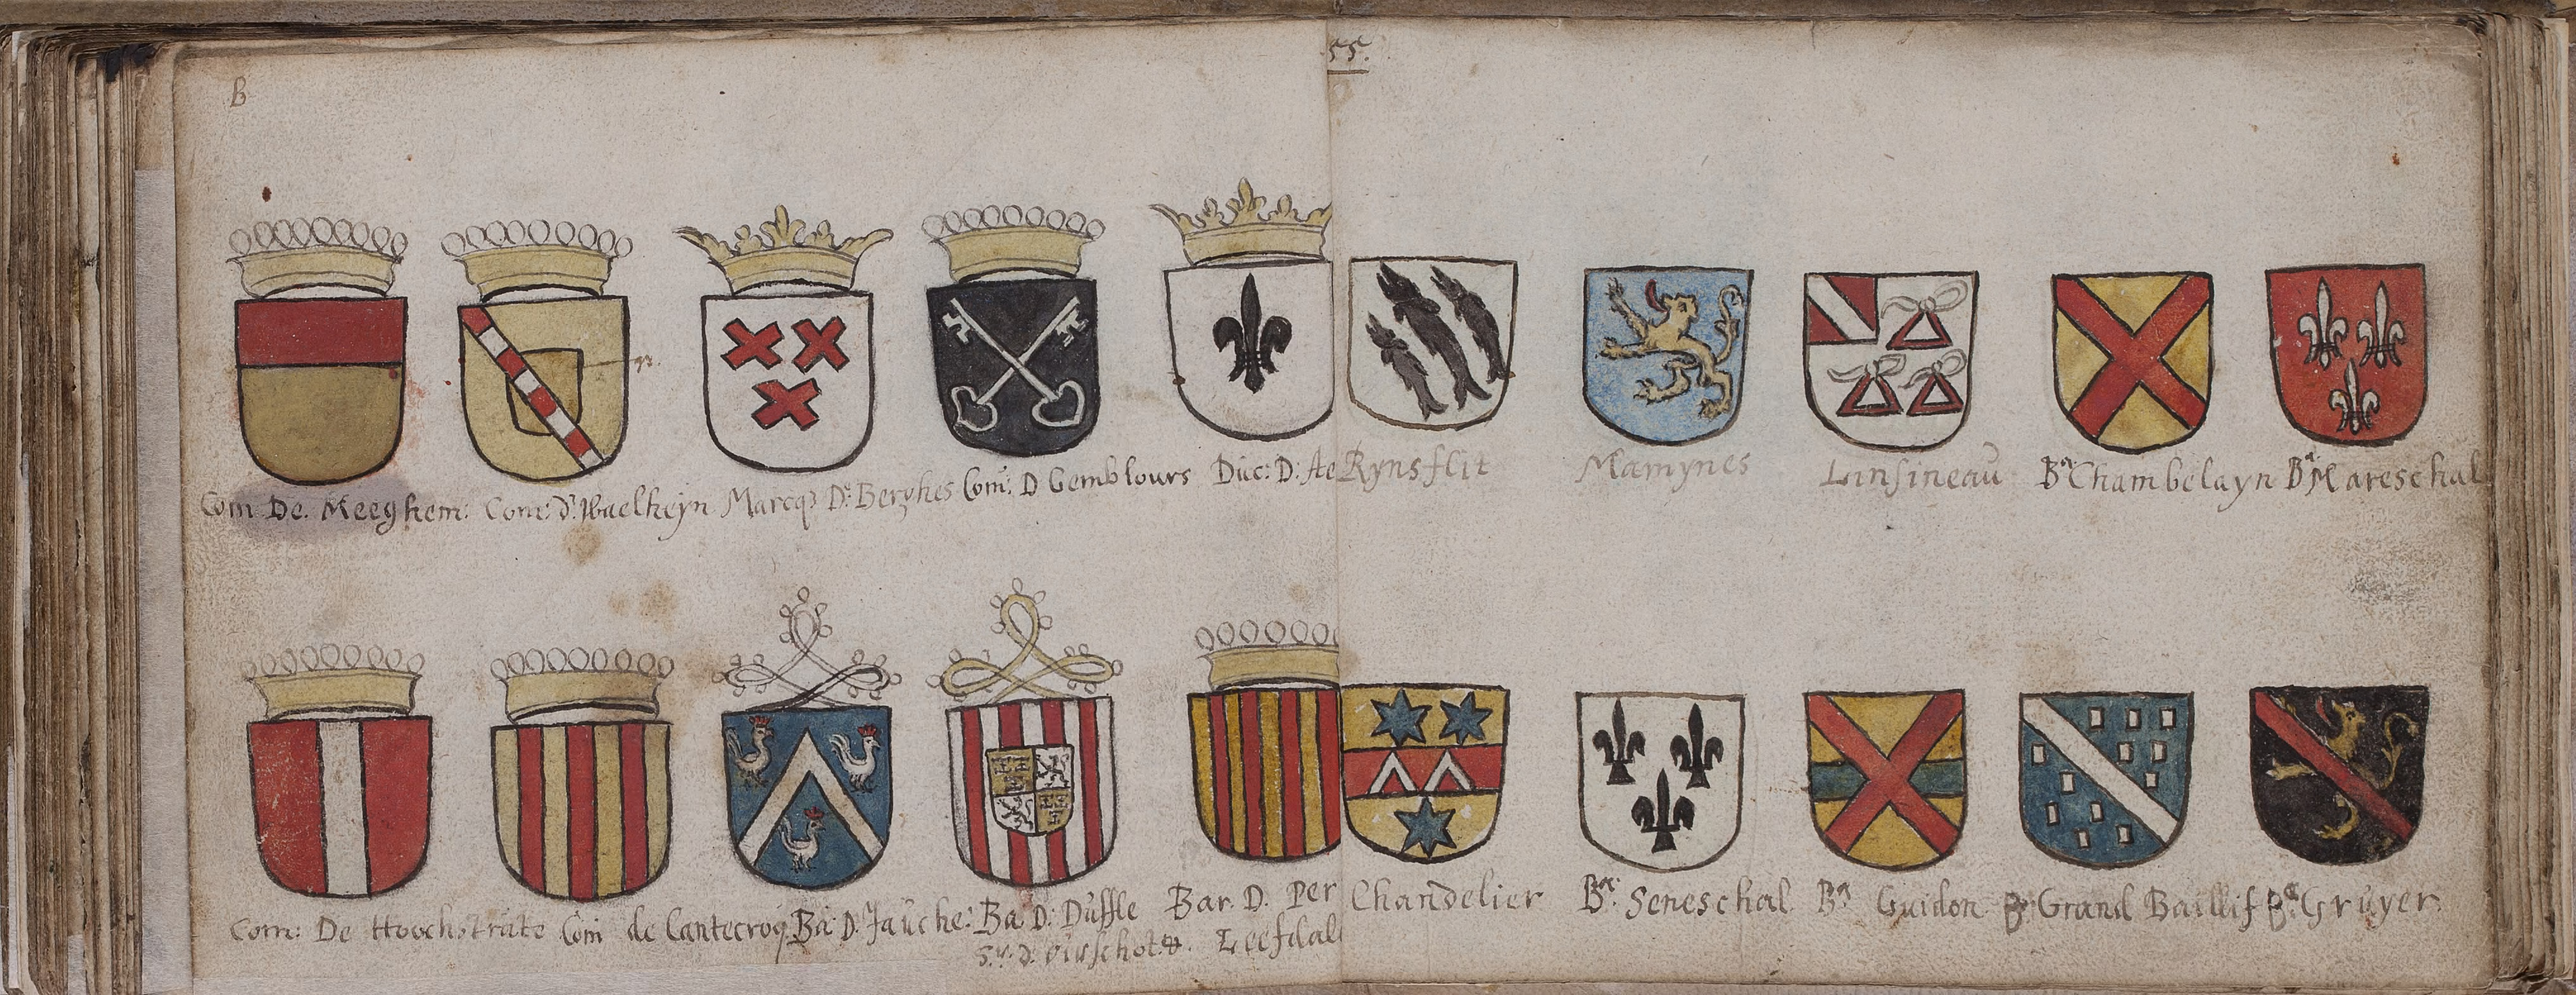 B
55.
Com De. Meeghem: Com: d'. Waelheyn Marcq3 De: Berghes Com: D Gemblours Duc: D: Ae
Rynsflit Mamynes Linsineau Ba Chambelayn Ba Mareschal
Com: De Hoochstrate Com de Cantecroy Ba: D: Jauche: Ba D: Duffle Bar. D. Per
Sr. d: Oirschot. Leefdal
Chandelier Ba: Seneschal Ba Guidon Ba Grand Baillif Ba Gruyer